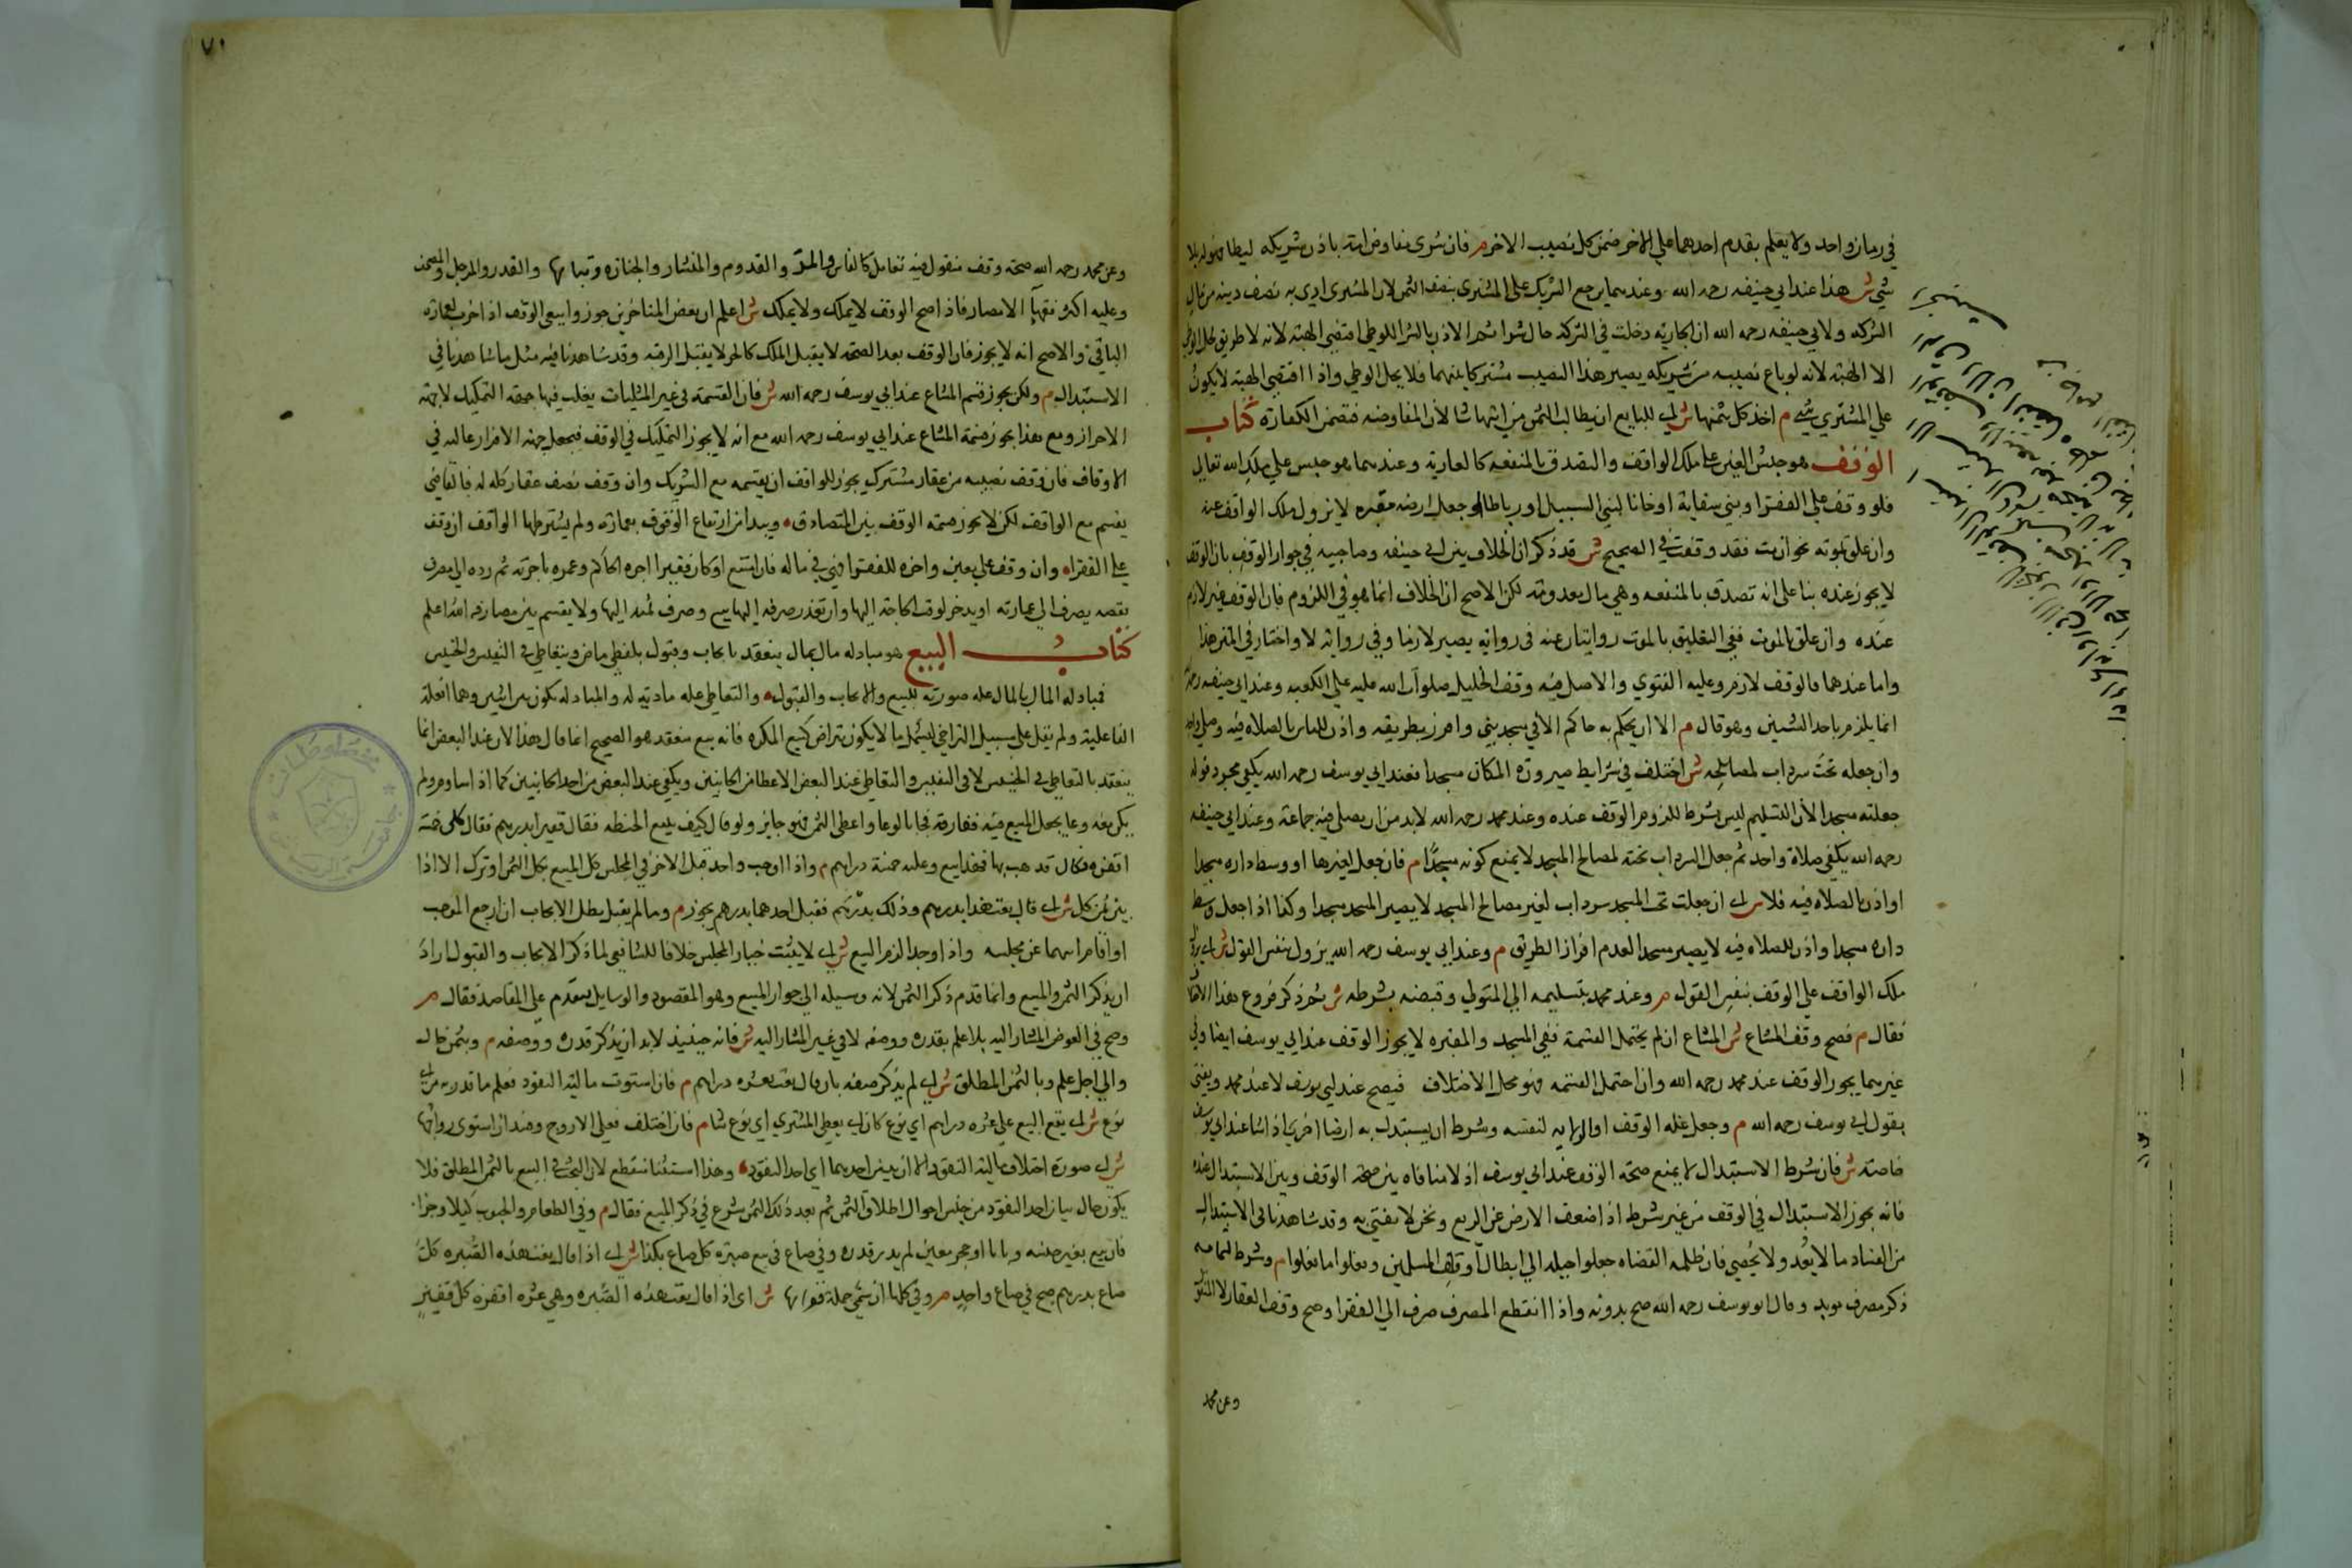 في زمان واحد ولا يعلم بقدم احدهما على الاخر ضمن كل نصيب الاخر م فان شرى مفاوض امة باذن شريكه ليطا فهو له بلا
شي ش هذا عند ابي حنيفه رحمه الله وعندهما يرجع الشريك على المشتري بنصف الثمن لان المشترى ادى به نصف دينه من مال
الشركه ولابي حنيفه رحمه الله ان الجاريه دخلت في الشركه حال الاذن بالشرا للوطي اقتضى الهبه لانه لا طريق لحل الوطي
الا الهبه لانه لو باع نصيبه من شريكه يصير هذا النصيب مشتركا بينهما فلا يحل الوطي واذا اقتضى الهبه لا يكون
على المشتري شي م اخذ كل بثمنها ش اي للبايع ان يطالب الثمن من ايهما شا لان المفاوضه فتضمن الكفاره كتاب
الوقف هو حبس العين على ملك الواقف والتصدق بالمنفعه كالعارية وعندهما هو حبس على ملك الله تعالى
فلو وقف على الفقرا او بني سقاية او خانا لبني السبيل او رباطا او جعل ارضه مقبره لا يزول ملك الواقف عنه
وان علق بموته نحو ان مت فقد وقفت في الصحيح ش قد ذكر ان الخلاف بين ابي حنيفه وصاحبيه في جواز الوقف بان الوقف
لا يجوز عنده بنا على انه تصدق بالمنفعه وهي مال معدومه لكن الاصح ان الخلاف انما هو في اللزوم فان الوقف غير لازم
عنده وان علق بالموت ففي التعليق بالموت روايتان عنه في روايه يصير لازما وفي روايه لا واختار في المتن هذا
واما عندهما فالوقف لازم وعليه الفتوي والاصل فيه وقف الخليل صلوات الله عليه على الكعبه وعند ابي حنيفه رحمه
انما يلزم باحد الشيئين وهو قال م الا ان يحكم به حاكم الا في مسجد بني وافرز بطريقه واذن للناس بالصلاه فيه وصلى واحد
وان جعله تحت سرداب لمصالحه ش اختلف في شرايط صيرورة المكان مسجدا فعند ابي يوسف رحمه الله يكفي مجرد قوله
جعلته مسجدا لان التسليم ليس بشرط للزوم الوقف عنده وعند محمد رحمه الله لابد من ان يصلى فيه جماعة وعند ابي حنيفه
رحمه الله يكفي صلاة واحد ثم جعل السرداب تحته لمصالح المسجد لا يمنع كونه مسجدا م فان جعل لغيرها او وسط داره مسجدا
او اذن بالصلاه فيه فلا ش اي ان جعلت تحت المسجد سرداب لغير مصالح المسجد لا يصير المسجد مسجدا وكذا اذا جعل وسط
داره مسجدا واذن للصلاه فيه لا يصير مسجدا لعدم افراز الطريق م وعند ابي يوسف رحمه الله يزول بنفس القول ش اي يزول
ملك الواقف على الوقف بنفس القول م وعند محمد بتسليمه الى المتولي وقبضه بشرطه ش ثم ذكر فروع هذا الاختلاف
فقال م فصح وقف المشاع ش المشاع ان لم يحتمل القسمة ففي المسجد والمقبره لا يجوز الوقف عند ابي يوسف ايضا وفي
غيرهما يجوز الوقف عند محمد رحمه الله وان احتمل القسمه فهو محل الاختلاف فيصح عند ابي يوسف لا عند محمد ويفتى
بقول ابي يوسف رحمه الله م وجعل غلة الوقف او الولاية لنفسه وشرط ان يستبدل به ارضا اخرى اذا شا عند ابي يوسف
خاصة ش فان شرط الاستبدال لا يمنع صحة الوقف عند ابي يوسف اذ لا منافاه بين صحة الوقف وبين الاستبدال عنده
فانه يجوز الاستبدال في الوقف من غير شرط اذا ضعف الارض عن الريع ونحن لا نفتي به وقد شاهدنا في الاستبدال
من الفساد ما لا يعد ولا يحصى فان ظلمه القضاه جعلوا حيله الى ابطال اوقاف المسلمين وفعلوا ما فعلوا م وشرط لتمامه
ذكر مصرف مؤبد وقال ابو يوسف رحمه الله صح بدونه واذا انقطع المصرف صرف الى الفقرا وصح وقف العقار لا المنقول
وعن محمد
٧١
وعن محمد رحمه الله صحة وقف منقول فيه تعامل كالفاس والمر والقدوم والمنشار والجنازه وثيابها والقدر والمرجل والمصحف
وعليه اكثر فقهآ الامصار فاذا صح الوقف لا يملك ولا يملك ش اعلم ان بعض المتاخرين جوزوا بيع الوقف اذا خرب لعمارة
الباقي والاصح انه لا يجوز فان الوقف بعد الصحة لا يقبل الملك كالحر لا يقبل الرقبه وقد شاهدنا فيه مثل ما شاهدنا في
الاستبدال م ولكن يجوز قسم المشاع عند ابي يوسف رحمه الله ش فان القسمة في غير المثليات يغلب فيها جهة التمليك لا جهة
الاحراز ومع هذا يجوز قسمة المشاع عند ابي يوسف رحمه الله مع انه لا يجوز التمليك في الوقف فيجعل جهة الافراز غالبه في
الاوقاف فان وقف نصيبه من عقار مشترك يجوز للواقف ان يقسمه مع الشريك وان وقف نصف عقار كله له فالقاضي
يقسم مع الواقف لكن لا يجوز قسمة الوقف بين المتصادق ويبدا من ارتفاع الوقوف بعمارته ولم يشترطها الواقف ان وقف
على الفقراء وان وقف على معين واخره للفقرا فهي في ماله فان امتنع او كان فقيرا اجره الحاكم وعمره باجرته ثم رده الى مصرفه
نقضه يصرف الى عمارته او يدخر لوقت الحاجة اليها وان تعذر صرفه اليها بيع وصرف ثمنه اليها ولا يقسم بين مصارفه الله اعلم
كتاب البيع هو مبادله مال بمال ينعقد بايجاب وقبول بلفظي ماض وبتعاطي في النفيس والخسيس
فمبادله المال بالمال علة صورية للبيع والايجاب والقبول والتعاطي علة مادية له والمبادله تكون بين اثنين وهما العلة
الفاعلية ولم يقل على سبيل التراضي ليشمل ما لا يكون بتراض كبيع المكره فانه بيع منعقد هو الصحيح انما قال هذا لان عند البعض انما
ينعقد بالتعاطي في الخسيس لا في النفيس والتعاطي عند البعض الاعطا من الجانبين ويكفي عند البعض من احد الجانبين كما اذا ساوم ولم
يكن معه وعا يجعل المبيع فيه ففارقه فجا بالوعا واعطى الثمن فهو جايز ولو قال كيف يبيع الحنطه فقال قفيزا بدرهم فقال كلني خمسة
اقفزه فكال فذهب بها فهذا بيع وعليه خمسة دراهم م واذا اوجب واحد قبل الاخر في المجلس كل المبيع بكل الثمن او ترك الا اذا
بين ثمن كل ش اي قال بعت هذا بدرهم وذلك بدرهم فقبل احدهما بدرهم يجوز م وما لم يقبل بطل الايجاب ان رجع الموجب
او اقام ايهما عن مجلسه واذا وجدا لزم البيع ش اي لا يثبت خيار المجلس خلافا للشافعي لما ذكر الايجاب والقبول اراد
ان يذكر الثمن والمبيع وانما قدم ذكر الثمن لانه وسيله الى جواز المبيع وهو المقصود والوسايل يتقدم على المقاصد فقال م
وصح في العوض المشار اليه بلا علم بقدره ووصفه لا في غير المشار اليه ش فانه حينئذ لابد ان يذكر قدره ووصفه م وبثمن حال
والي اجل علم وبالثمن المطلق ش اي لم يذكر صفته بان قال بعت بعشره دراهم م فان استوت مالية النقود فعلم ما قدر به من اي
نوع ش اي يقع البيع على عشره دراهم اي نوع كان اي يعطي المشتري اي نوع شا م فان اختلف فعلى الاروج وفسد ان استوى رواجها
ش اي صورة اختلاف مالية النقود الا ان يبين احدهما اي احد النقود وهذا استثنا منقطع لان البحث في البيع بالثمن المطلق فلا
يكون حال بيان احد النقود من جنس احوال اطلاق الثمن ثم بعد ذلك الثمن شرع في ذكر المبيع فقال م وفي الطعام والحبوب كيلا وجزافا
فان بيع بغير جنسه وبانا او حجر معين لم يدر قدره وفي صاع في بيع صبرة كل صاع بكذا ش اي اذا قال بعت هذه الصبره كل
صاع بدرهم صح في صاع واحد م وفي كلها ان سمى جملة قفزانها ش اى اذا قال بعت هذه الصبره وهي عشره اقفزه كل قفيز